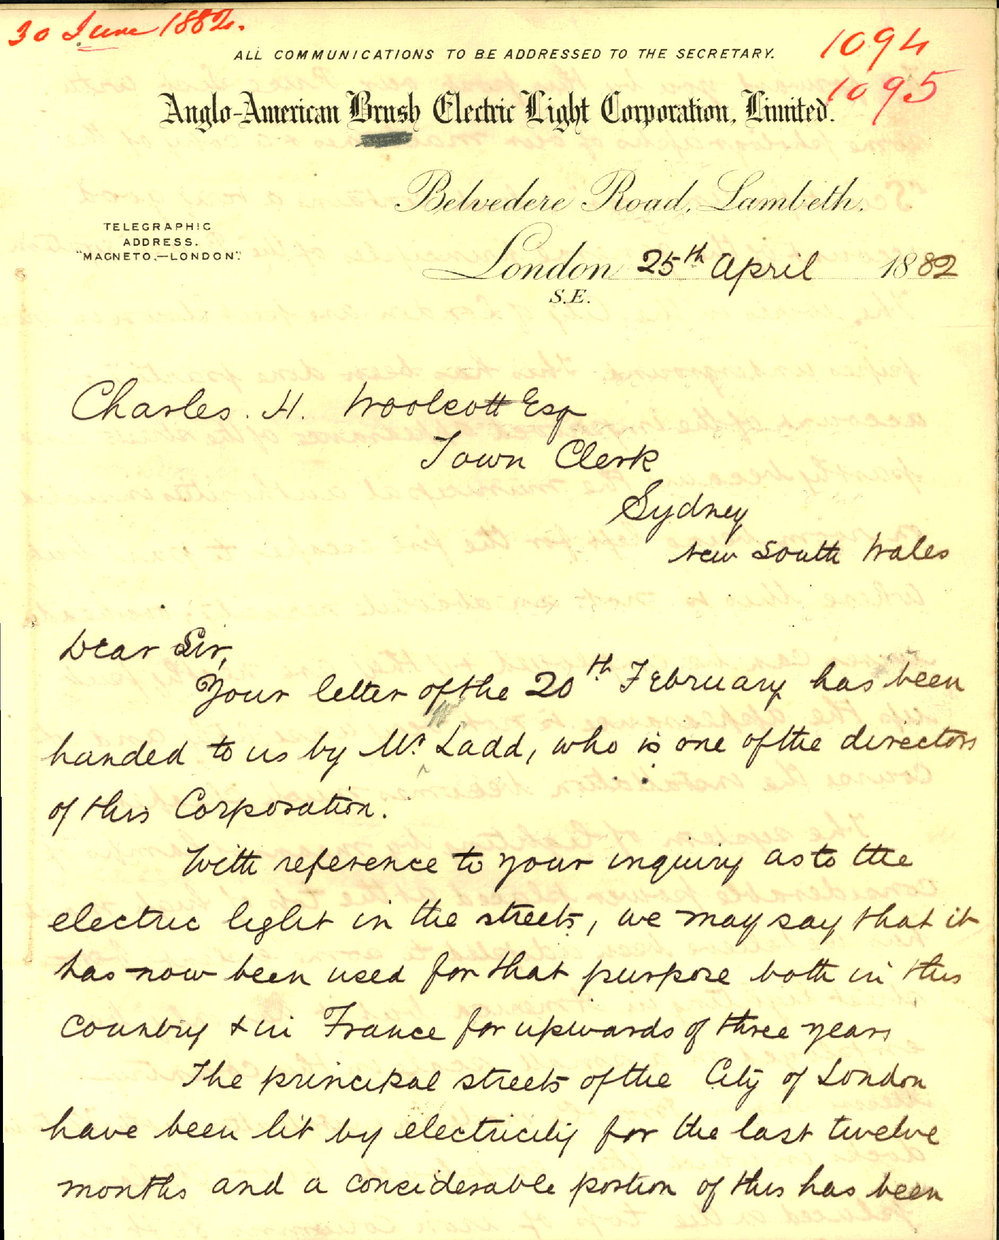 30 June 1882.
1094
1095
ALL COMMUNICATIONS TO BE ADDRESSED TO THE SECRETARY.
Anglo-American Brush Electric Light Corporation, Limited.
Belvedere Road, Lambeth.
TELEGRAPHIC
ADDRESS.
"MAGNETO.—LONDON".
London 25th April 1882
S.E.
Charles. H. Woolcott Esq
Town Clerk
Sydney
New South Wales
Dear Sir,
Your letter of the 20th February has been
handed to us by Mr Ladd, who is one of the directors
of this Corporation.
With reference to your inquiry as to the
electric light in the streets, we may say that it
has now been used for that purpose both in this
country & in France for upwards of three years
The principal streets of the City of London
have been lit by electricity for the last twelve
months and a considerable portion of this has been